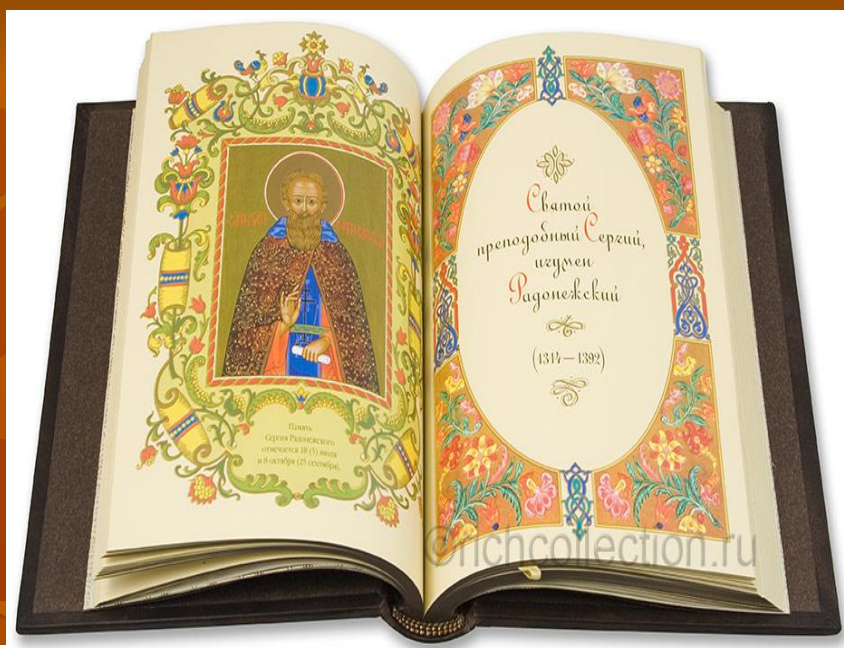 Память
Сергия Радонежского
отмечается 18 (5) июля
и 8 октября (25 сентября).
Святой
преподобный Сергий,
игумен
Радонежский
(1314—1392)
©richcollection.ru